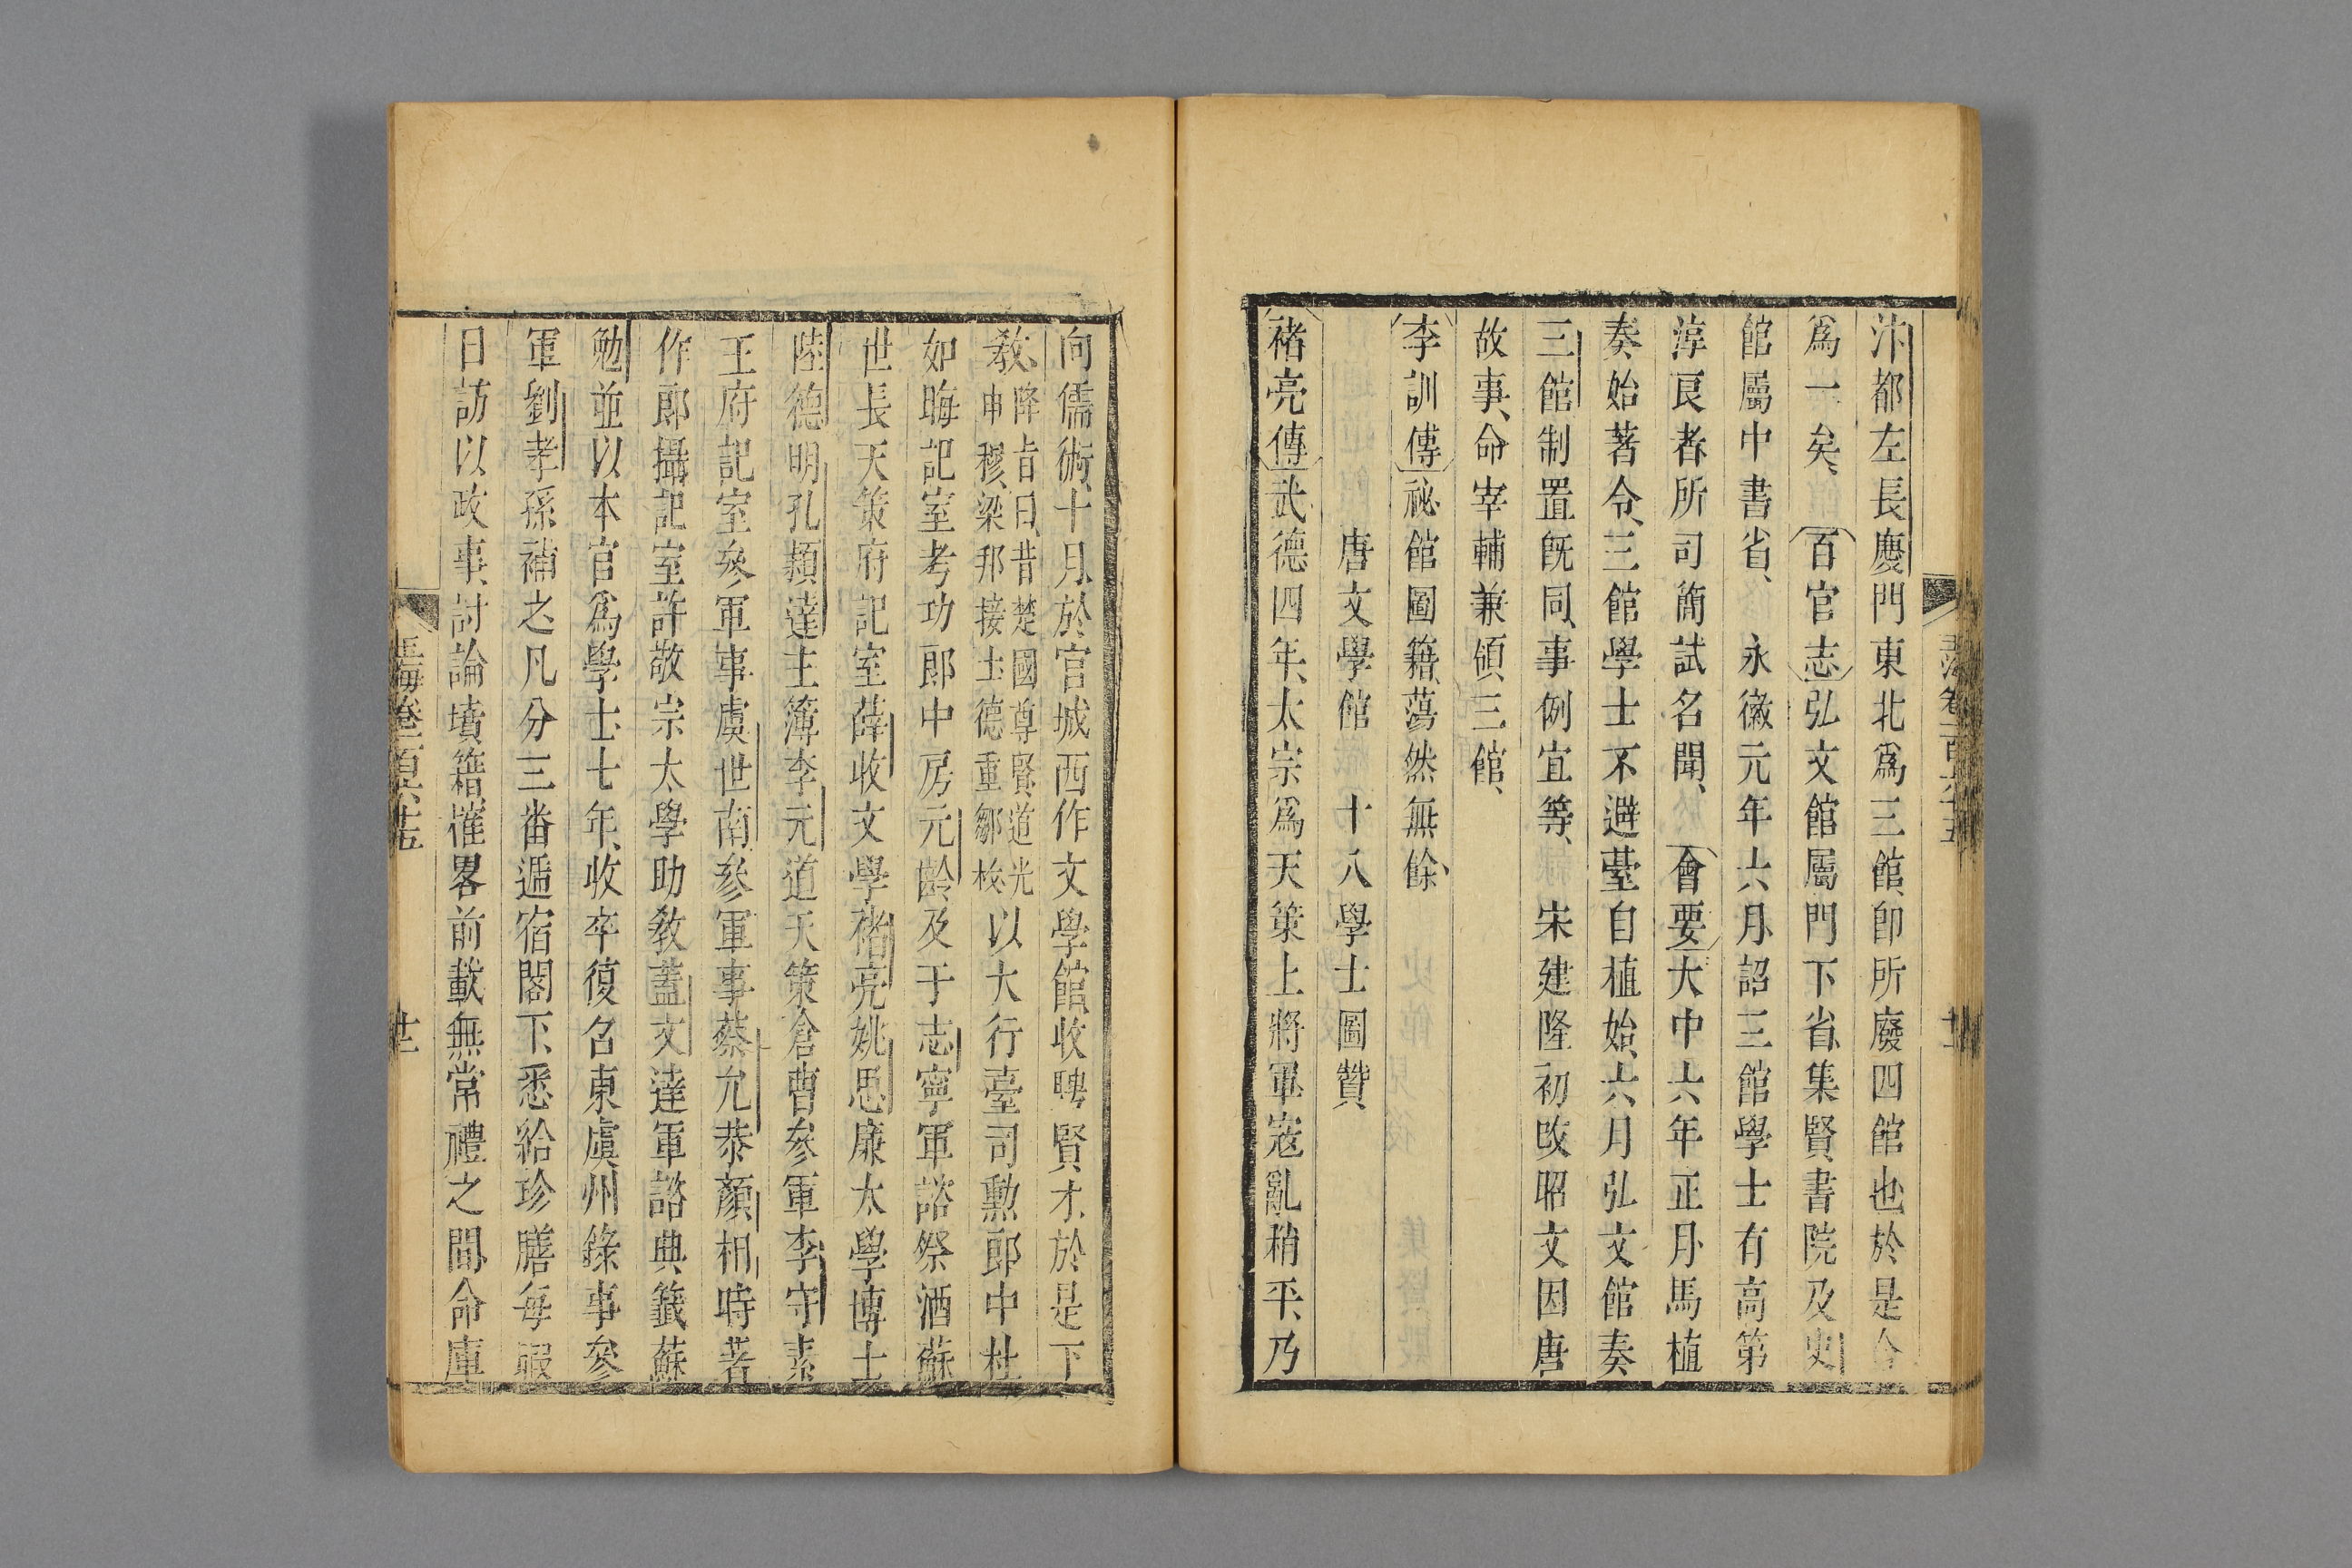 汴都左長慶門東北爲三館卽所廢四館也於是合
爲一矣百官志弘文館屬門下省集賢書院及史
館屬中書省永徽元年六月詔三館學士有高第
淳良者所司簡試名聞會要大中六年正月馬植
奏始著令三館學士不避臺自植始六月弘文館奏
三館制置旣同事例宜等宋建隆初改昭文因唐
故事命宰輔兼領三館
李訓傳祕館圖籍蕩然無餘
唐文學館 十八學士圖贊
褚亮傳武德四年太宗爲天策上將軍寇亂稍平乃
向儒術十月於宮城西作文學館收聘賢才於是下
教降旨曰昔楚國尊賢道光申穆梁邦接士德重鄒枚以大行臺司勲郎中杜
如晦記室考功郎中房元齡及于志寧軍諮祭酒蘇
世長天策府記室薛收文學褚亮姚思廉太學博士
陸德明孔穎達主簿李元道天策倉曹參軍李守素
王府記室參軍事虞世南參軍事蔡允恭顏相時著
作郎攝記室許敬宗太學助教蓋文達軍諮典籤蘇
勉並以本官爲學士七年收卒復召東虞州錄事參
軍劉孝孫補之凡分三番遞宿閣下悉給珍膳每暇
日訪以政事討論墳籍榷畧前載無常禮之間命庫
玉海卷一百六十五